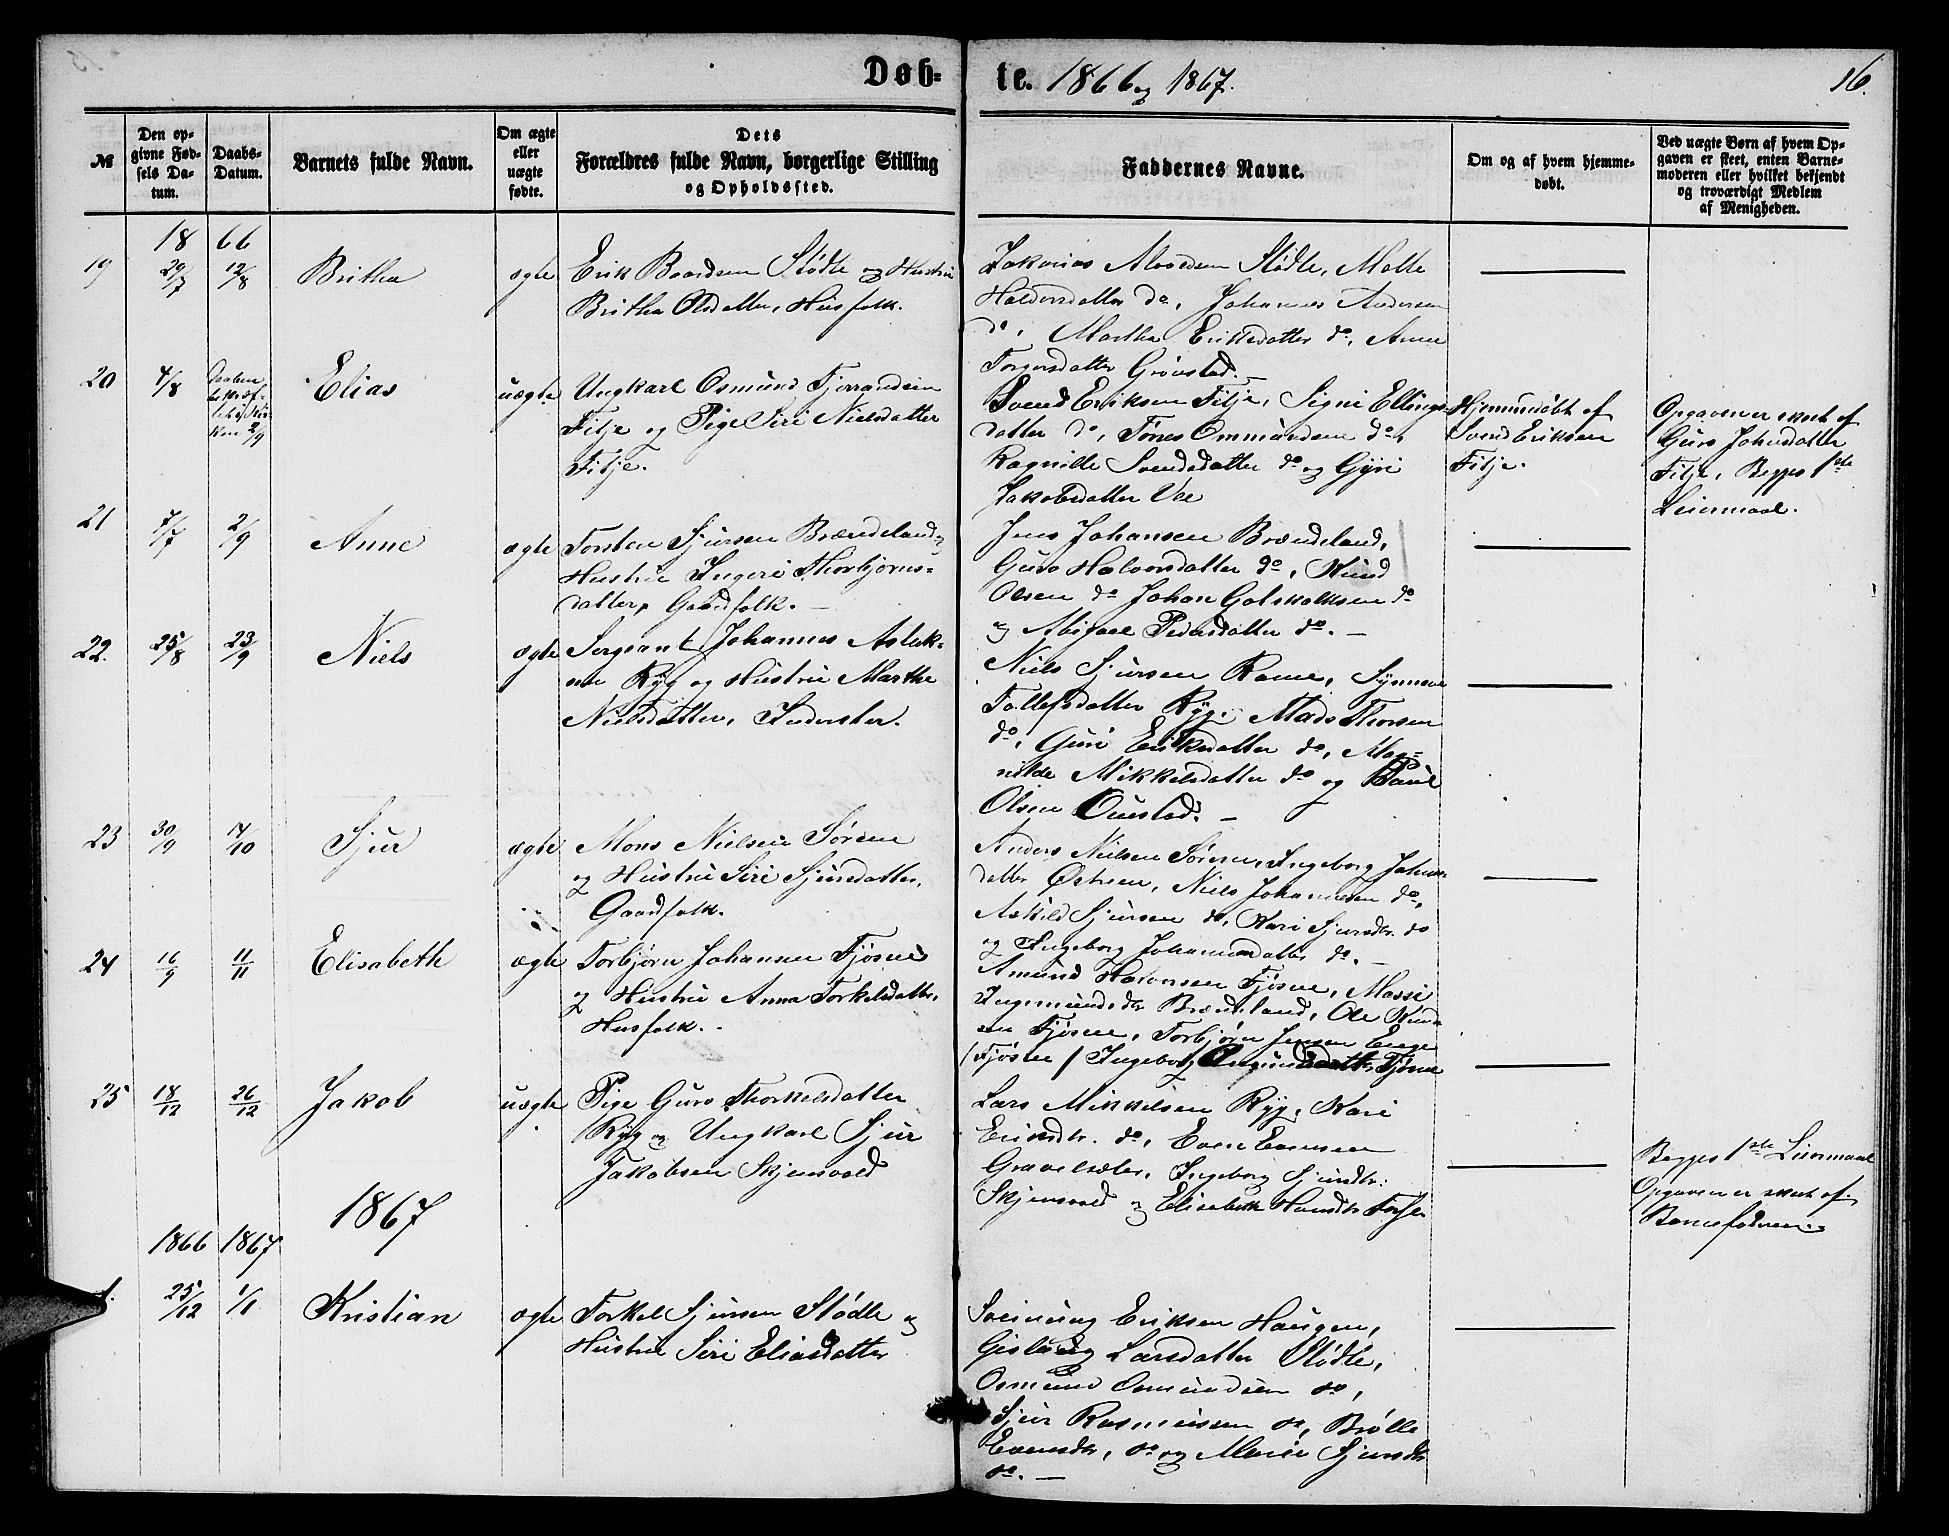 Døb-te. 1866 og 1867.
16.
№
Den opgivne Fødsels Datum.
Daabs-Datum.
Barnets fulde Navn.
Om ægte eller uægte fødte.
Dets Forældres fulde Navn, borgerlige Stilling og Opholdssted.
Faddernes Navne.
Om og af hvem hjemmedøbt.
Ved uægte Børn af hvem Opgaven er skeet, enten Barnemoderen eller hvilket bekjendt og troværdigt Medlem af Menigheden.
1866
19 29/7 12/8 Britha ægte
Erik Baardsen Stødle og Hustrue
Britha Olsdatter, Husfolk.
Zakarias Stødle, Malle
Haldorsdatter do, Johannes Andersen
do, Martha Eriksdatter do, Anne
Torgersdatter Grönstad.
20 4/8
Daaben
bekræf-
tet i Kir-
ken 2/9
Elias uægte
Ungkarl Osmund
Fitje og Pige Siri Nielsdatter
Fitje.
Svend Eriksen Fitje, Signi Ellings-
datter do, Tönes Ommundsen do,
Ragnilde Svendsdatter do og Gyri
Jakobsdatter Vee
Hjemmedöbt af
Svend Eriksen
Fitje.
Opgaven er skeet af
Guro Johnsdatter
Fitje, Begges 1ste
Leiermaal.
21 7/7 2/9 Anne ægte
Torsten Sjursen Brændeland og
Hustrue Ingeri Thorbjörns-
datter, Gaardfolk.
Jens Johansen Brændeland,
Guro Halvorsdatter do, Knud
Olsen do Johan Gotskalksen do
og Abigael Pedersdatter do.
22. 25/8 23/9 Niels ægte
Sergeant Johannes Aslak-
sen Ryg og Hustrue Marthe
Nielsdatter, Inderster.
Niels Sjursen Rame, Synneve
Tollefsdatter Ryg, Mads Thorsen
do, Guri Eriksdatter do, Mag-
nilde Mikkelsdatter do og Paul
Olsen Ouestad.
23 30/9 14/10 Sjur ægte
Mons Nielsen Sörene
og Hustrue Siri Sjursdatter,
Gaardfolk.
Anders Nielsen Sörene, Ingeborg
datter Østreen, Niels Johannesen do,
Askild Sjursen do, Kari Sjursdtr. do
og Ingeborg Johannesdatter do.
24 16/9 11/11 Elisabeth ægte
Torbjörn Johannesen Fjösne
og Hustrue Anna Torkelsdatter,
Husfolk.
Amund Halvorsen Fjösne, Massi
Ingemundsdtr Brændeland, Ole Knud-
sen Fjösne, Torbjörn Jensen Enge
/Fjösne/ Ingeborg Fjösne
25 18/12 26/12 Jakob uægte
Pige Guro Thorkelsdatter
Ryg og Ungkarl Sjur
Jakobsen Skjensvold
Lars Mikkelsen Ryg, Kari
Eriksdtr. do, Even Evensen
Gravelsæter, Ingeborg Sjursdtr.
Skjensvold og Elisabeth
Begges 1ste Leiermaal
Opgaven er skeet af
Barnefaderen.
1867
1866 1867
1. 25/12 1/1 Kristian ægte
Torkel Sjursen Stødle og
Hustrue Siri Eliasdatter
Sveinung Eriksen Haugen,
Gislaug Larsdatter Stødle,
Osmund Osmundsen do,
Sjur Rasmussen do, Brölle
Evensdtr, do og Marie Sjursdtr
do.